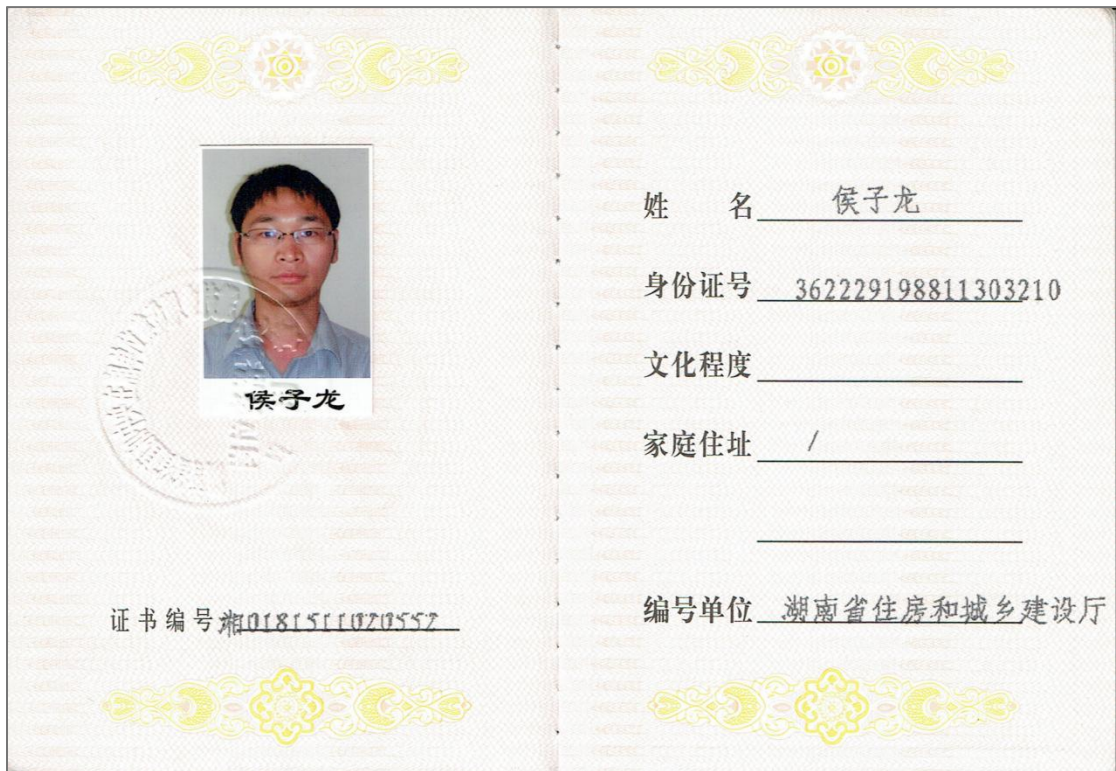 侯子龙
证书编号 湘0181511020552
姓 名 侯子龙
身份证号 362229198811303210
文化程度
家庭住址 /
编号单位 湖南省住房和城乡建设厅